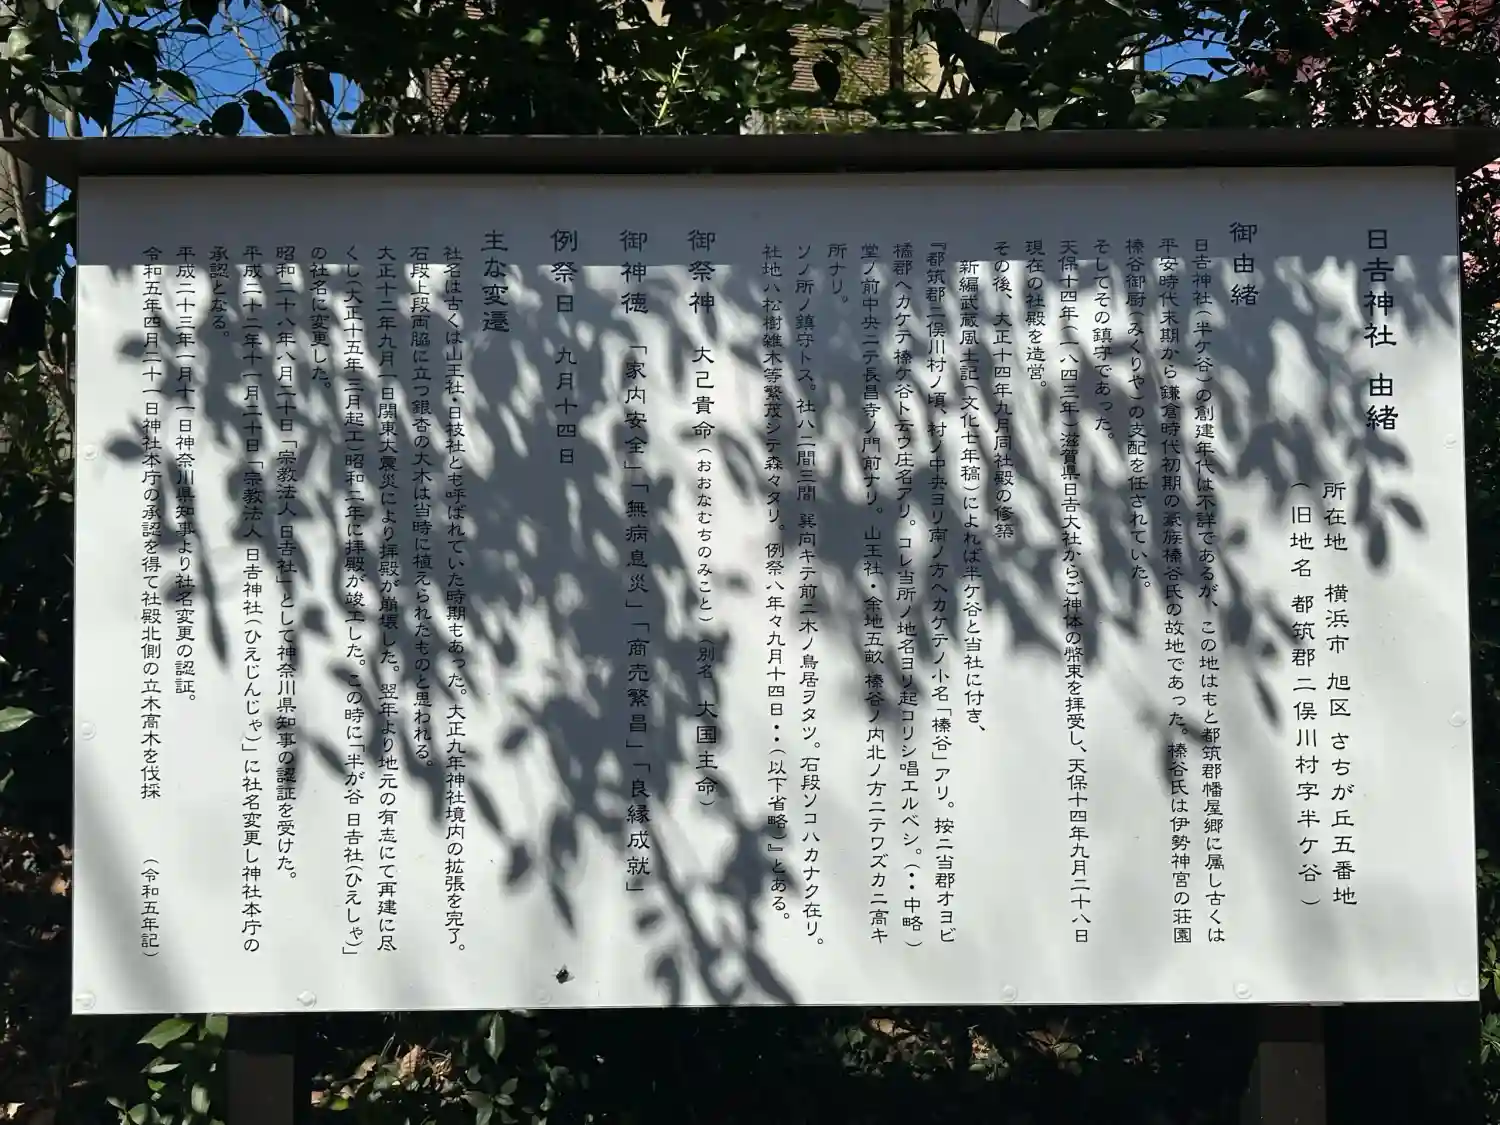 日吉神社 由緒
所在地 横浜市 旭区 さちが丘五番地
(旧地名 都筑郡 二俣川村字半ケ谷)
御由緒
日吉神社(半ケ谷)の創建年代は不詳であるが、この地はもと都筑郡幡屋郷に属し古くは
平安時代末期から鎌倉時代初期の豪族榛谷氏の故地であった。榛谷氏は伊勢神宮の荘園
榛谷御厨(みくりや)の支配を任されていた。
そしてその鎮守であった。
天保十四年(一八四三年)滋賀県日吉大社からご神体の幣束を拝受し、天保十四年九月二十八日
現在の社殿を造営。
その後、大正十四年九月同社殿の修築
新編武蔵風土記(文化七年稿)によれば半ケ谷と当社に付き、
『都筑郡二俣川村ノ頃、村ノ中央ヨリ南ノ方ヘカケテノ小名「榛谷」アリ。按ニ当郡オヨビ
橘郡ヘカケテ榛ケ谷ト云ウ庄名アリ。コレ当所ノ地名ヨリ起コリシ唱エルベシ。(・・中略)
堂ノ前中央ニテ長昌寺ノ門前ナリ。山王社・余地五畝 榛谷ノ内北ノ方ニテワズカニ高キ
所ナリ。
ソノ所ノ鎮守トス。社ハ二間三間 巽向キテ前ニ木ノ鳥居ヲタツ。石段ソコハカナク在リ。
社地ハ松樹雑木等繁茂シテ森々タリ。例祭ハ年々九月十四日・・(以下省略)』とある。
御祭神 大己貴命(おおなむちのみこと)(別名 大国主命)
御神徳 「家内安全」「無病息災」「商売繁昌」「良縁成就」
例祭日 九月十四日
主な変遷
社名は古くは山王社・日枝社とも呼ばれていた時期もあった。大正九年神社境内の拡張を完了。
石段上段両脇に立つ銀杏の大木は当時に植えられたものと思われる。
大正十二年九月一日関東大震災により拝殿が崩壊した。翌年より地元の有志にて再建に尽
くし(大正十五年三月起工)昭和二年に拝殿が竣工した。この時に「半が谷 日吉社(ひえしゃ)」
の社名に変更した。
昭和二十八年八月二十日「宗教法人 日吉社」として神奈川県知事の認証を受けた。
平成二十二年十一月二十日「宗教法人 日吉神社(ひえじんじゃ)」に社名変更し神社本庁の
承認となる。
平成二十三年一月十一日神奈川県知事より社名変更の認証。
令和五年四月二十一日神社本庁の承認を得て社殿北側の立木高木を伐採 (令和五年記)